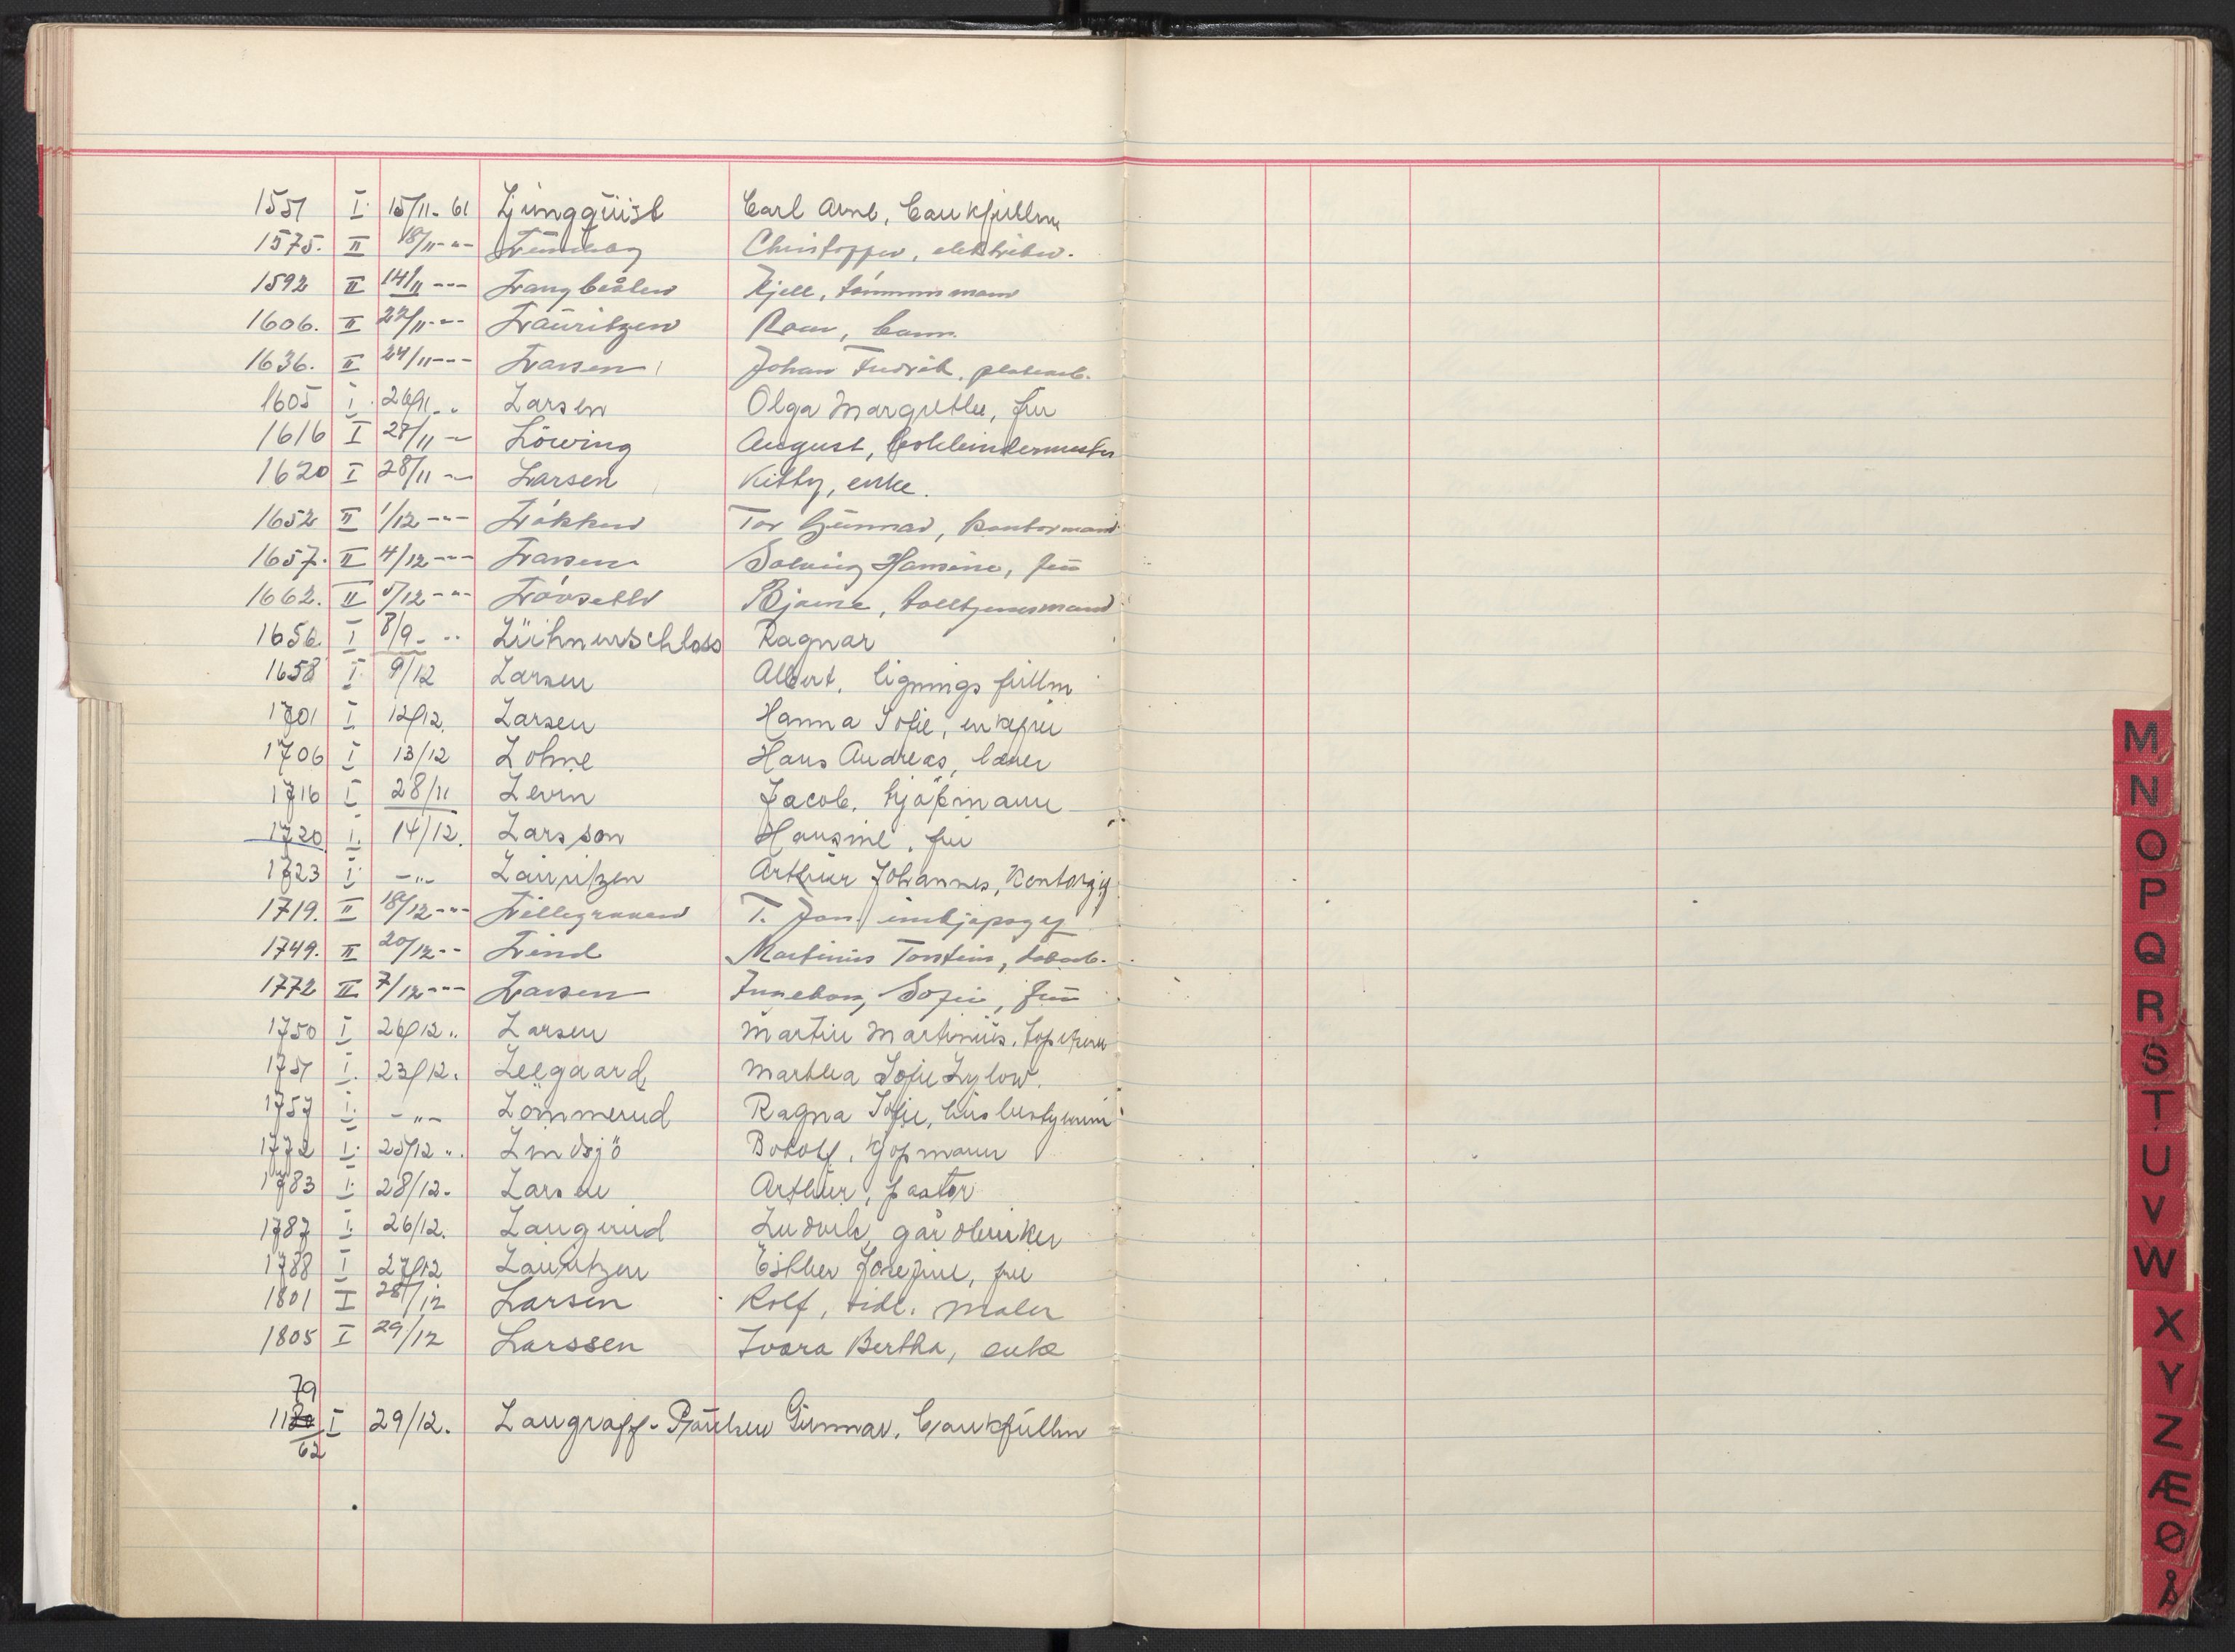 1551 I 15/11-61 Ljungquist Carl Arne, bankfullm
1575. II 18/11 -"- Christoffer, elektriker.
1592 II 14/11 -"- Langbråten Kjell, tømmermann
1606. II 22/11 -"- Lauritzen Roar, barn.
1636. II 24/11 -"- Larsen Johan Fredrik, platearb.
1605 I 26/11 -"- Larsen Olga Margrethe, fru
1616 I 27/11 -"- Löwing August, bokbindermester
1620 I 28/11 -"- Larsen Kitty, enke.
1652 II 1/12 -"- Løkken Tor Gunnar, kontormann
1657. II 4/12 -"- Larsen Solveig Hansine, fru
1662. II 5/12 -"- Løvseth Bjarne, tolltjenestmand
1656 I 8/9 -"- Ragnar
1658 I 9/12 Larsen Albert, ligningsfullm
1701 I 12/12. Larsen Hanna Sofie, enkefru
1706 I 13/12 Lohne Hans Andreas, lærer
1716 I 28/11 Levin Jacob, kjøpmann
1720 I. 14/12. Larsson Hansine, fru
1723 I -"- Lauritzen Arthur Johannes, Kontorsj
1719. II 18/12 -"- Lillegraven T. Jan, innkjøpssj
1749. II 20/12 -"- Lind Martinius Torstein,
1772 II 7/12 -"- Larsen Ingeborg Sofie, fru
1750 I 26/12 " Larsen Martin Martinius,
1751 I. 23/12. Leegaard Martha Sofie Lylow.
1757 I. -"- Lømmerud Ragna Sofie, husbestyrerin
1772 I. 25/12 " Lindsjö Botolf, kjøpmann
1783 I 28/12. Larsen Arthur, pastor
1787 I. 26/12. Langerud Ludvik, gårdbruker
1788 I 27/12 Lauritzen Esther Josefine, fru
1801 I 28/12 Larsen Rolf, tidl. maler
1805 I 29/12 Larssen Ivara Bertha, enke
79
1180 I 29/12. Langraff- Paulsen Gunnar, bankfullm
62
M
N
O
P
Q
R
S
T
U
V
W
X
Y
Z
Æ
Ø
Å